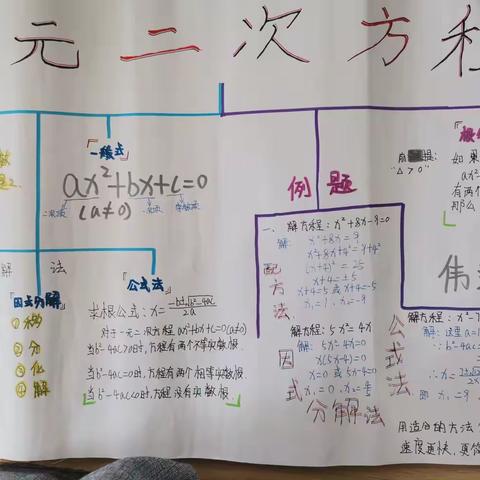 元二次方程
「一般式」
ax²+bx+c=0
(a≠0)
二次项 一次项 常数项
解 法
「因式分解」
①移
②分
③化
④解
「公式法」
求根公式: x=-b±√b²-4ac/2a
对于一元二次方程 ax²+bx+c=0(a≠0)
当b²-4ac>0时,方程有两个不等实数根.
当b²-4ac=0时,方程有两个相等实数根.
当b²-4ac<0时,方程没有实数根.
例 题
一、解方程: x²+8x-9=0
解: x²+8x=9
x²+8x+4²=9+4²
(x+4)²=25
x+4=±5
x+4=5或x+4=-5
x₁=1, x₂=-9
配方法
解方程: 5x²=4x
解: 5x²-4x=0
x(5x-4)=0
x=0或5x-4=0
x₁=0, x₂=4/5
因式分解法
公式法
解方程: x²-
解: 这里a=1
∵b²-4ac=
∴x=
即 x₁=9
用适合的方法
速度更快,更
"△>0"
如果
ax²
有两个
那么
伟